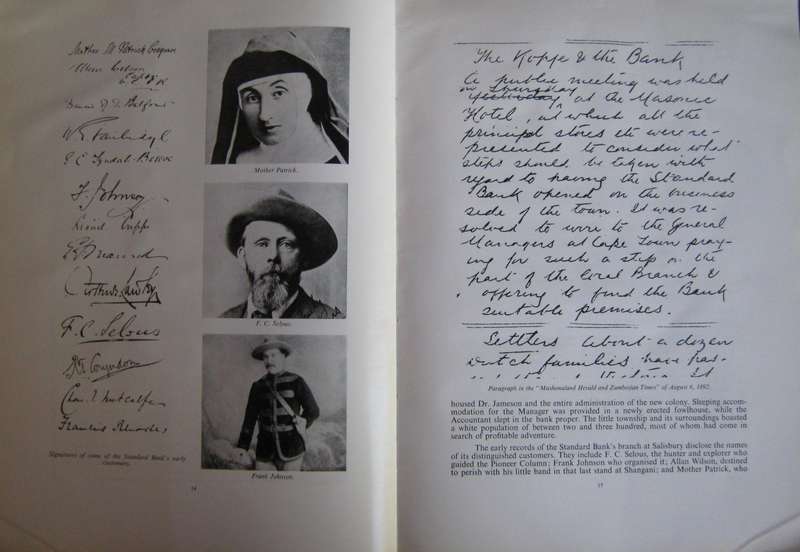 Mother M Patrick Cosgrave
Allan Wilson
F. Johnson
Lionel Cripps
F. C. Selous
Chas. T. Metcalfe
Francis Rhodes
Signatures of some of the Standard Bank's early
customers.
Mother Patrick.
F. C. Selous.
Frank Johnson.
14
The Kopje & the Bank
A public meeting was held
on Thursday
yesterday at the Masonic
Hotel, at which all the
principal stores etc were re-
presented to consider what
steps should be taken with
regard to having the Standard
Bank opened on the business
side of the town. It was re-
solved to wire to the General
Managers at Cape Town pray-
ing for such a step on the
part of the local Branch &
offering to find the Bank
suitable premises.
Settlers About a dozen
Dutch families have
Paragraph in the "Mashonaland Herald and Zambesian Times" of August 6, 1892.
housed Dr. Jameson and the entire administration of the new colony. Sleeping accom-
modation for the Manager was provided in a newly erected fowlhouse, while the
Accountant slept in the bank proper. The little township and its surroundings boasted
a white population of between two and three hundred, most of whom had come in
search of profitable adventure.
The early records of the Standard Bank's branch at Salisbury disclose the names
of its distinguished customers. They include F. C. Selous, the hunter and explorer who
guided the Pioneer Column; Frank Johnson who organised it; Allan Wilson, destined
to perish with his little band in that last stand at Shangani; and Mother Patrick, who
15